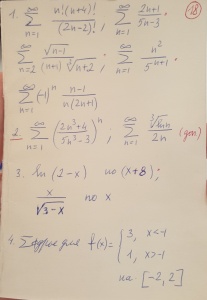 1. ∞∑n=1 n!(n+4)!/(2n-2)! ; ∞∑n=1 (2n+1)/(5n-3) . (18)
∞∑n=2 √(n-1)/((n+1)∜(n+2)) ; ∞∑n=1 n²/5ⁿ⁺¹ .
∞∑n=1 (-1)ⁿ (n-1)/(n(2n+1))
2. ∞∑n=1 ((2n³+4)/(5n³-3))ⁿ ; ∞∑n=1 ∛(ln n)/2n (доп)
3. ln(2-x) по (x+8) ;
x/√(3-x) по x
4. ∑ для f(x) = { 3, x<-1
1, x>-1
на [-2, 2]